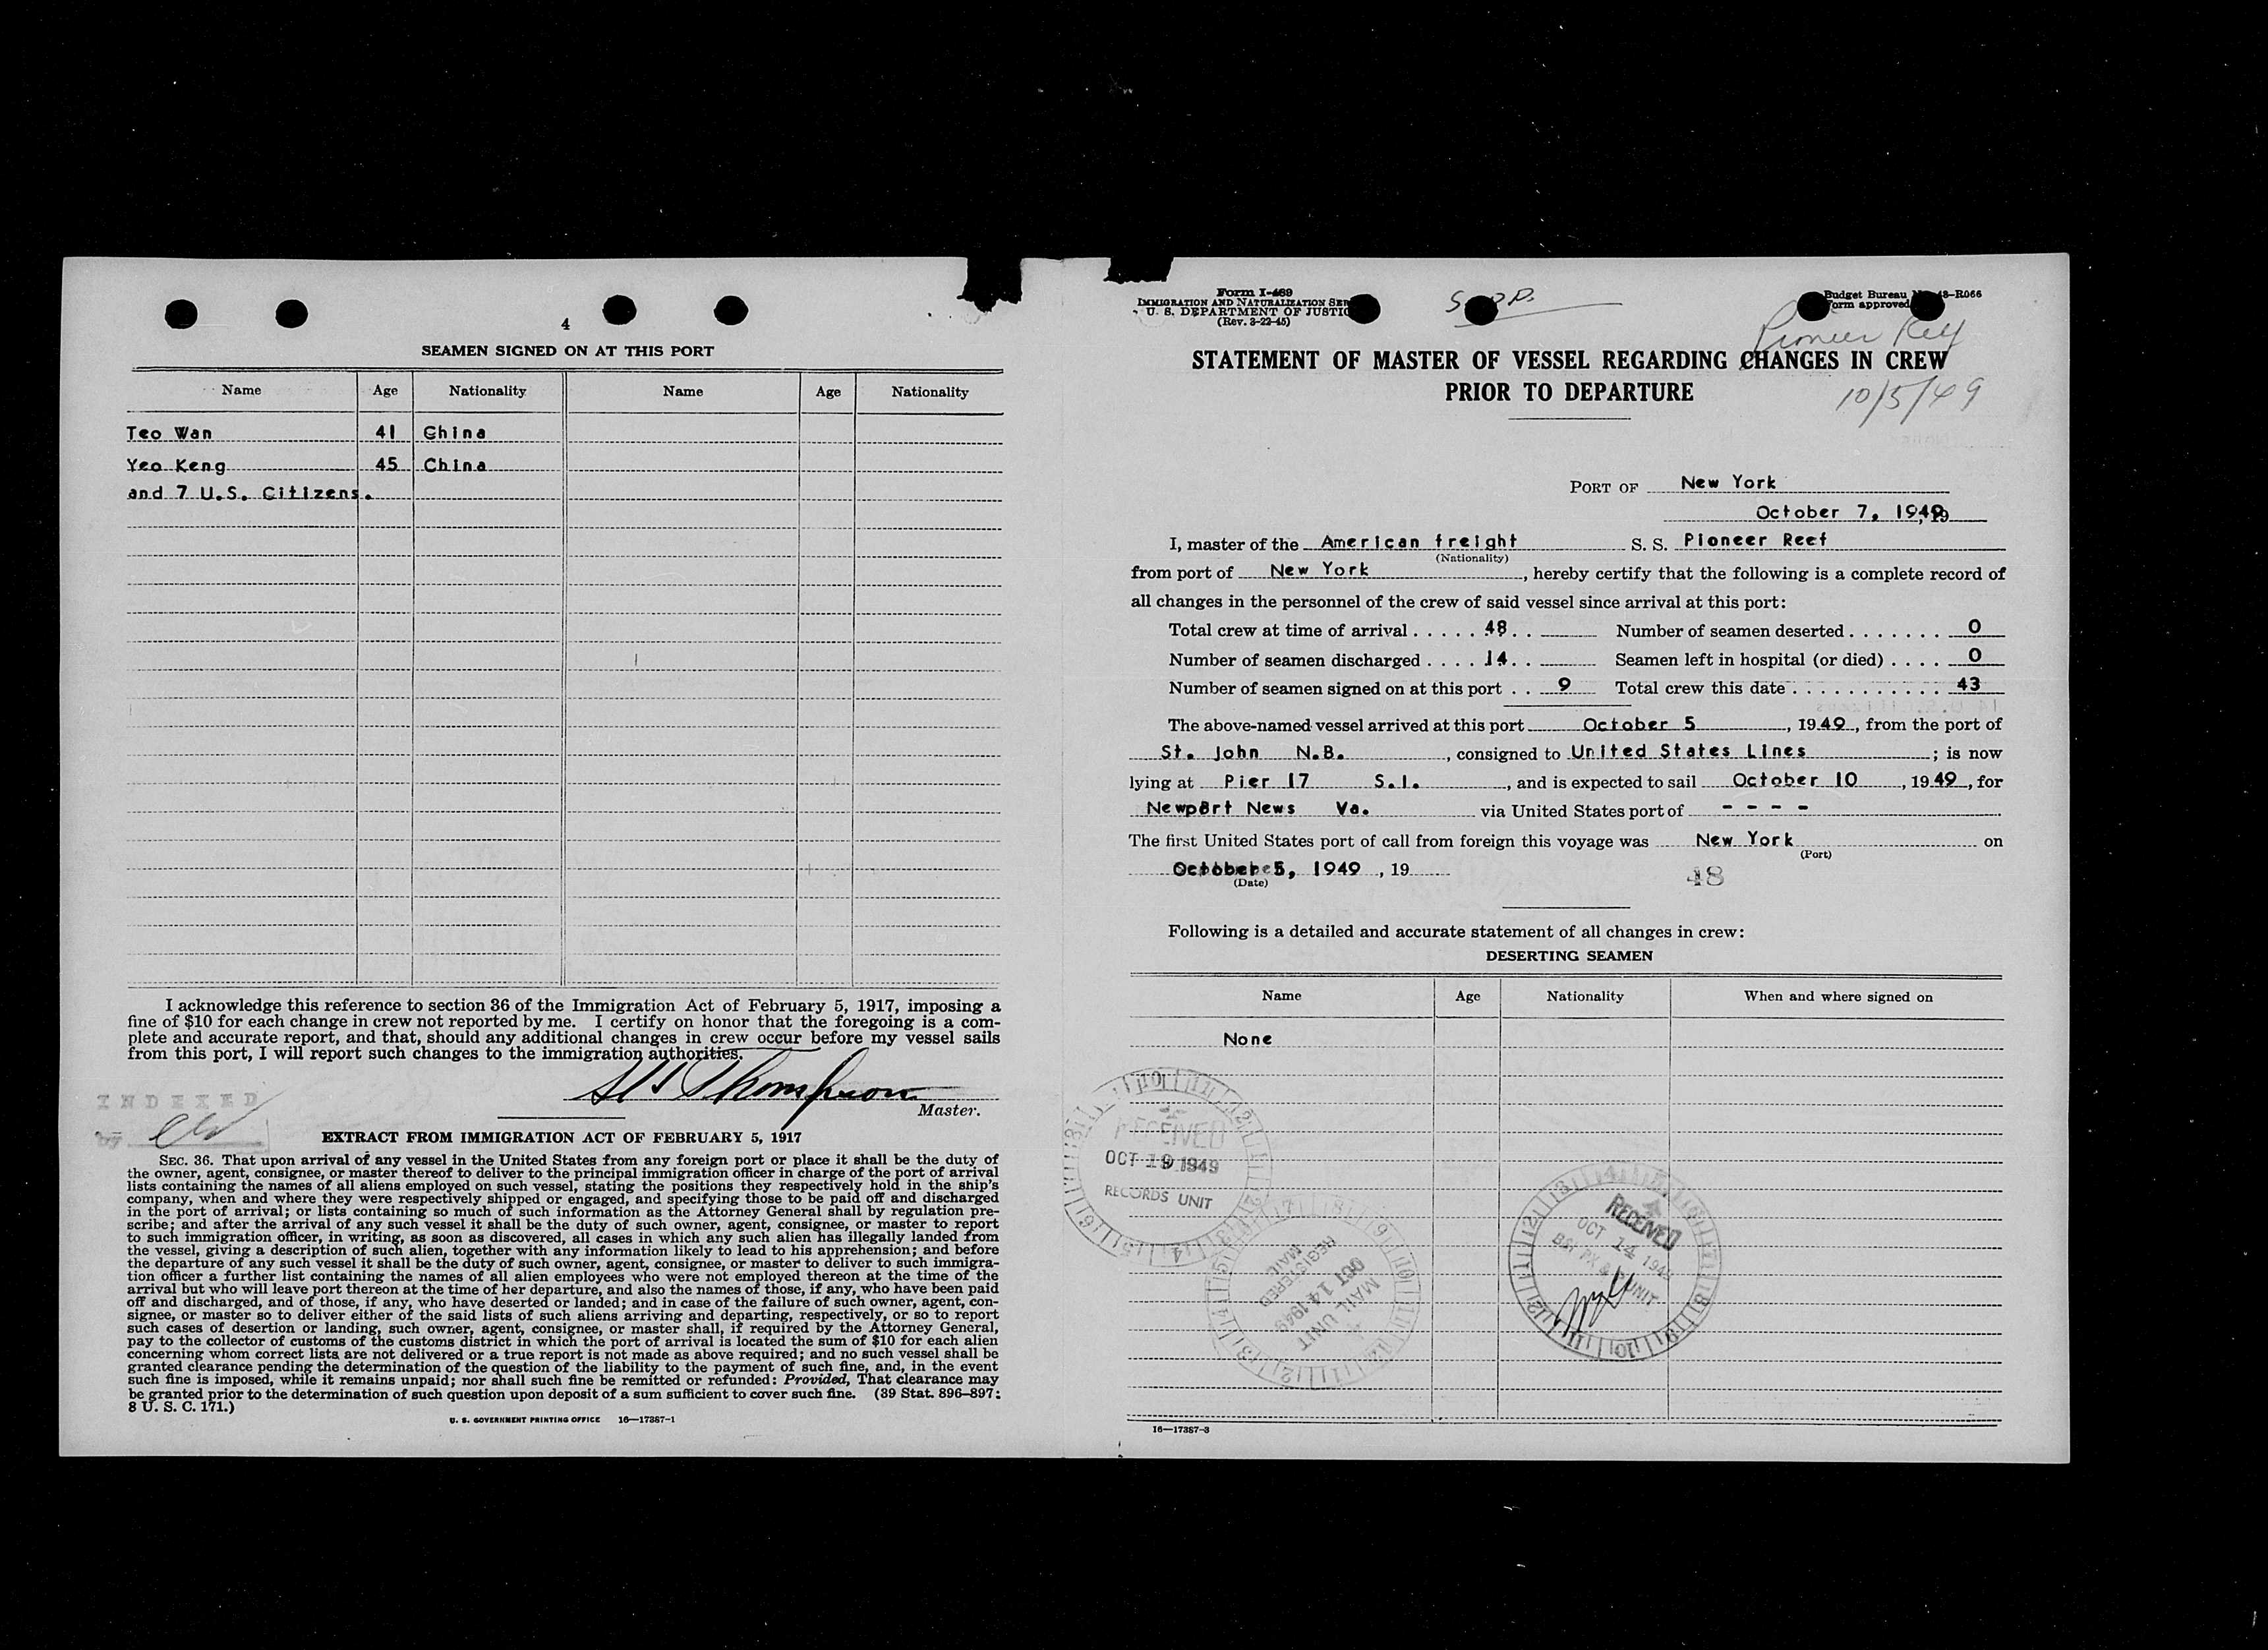 4
SEAMEN SIGNED ON AT THIS PORT
Name Age Nationality Name Age Nationality
Teo Wan 41 China
Yeo Keng 45 China
and 7 U.S. Citizens.
I acknowledge this reference to section 36 of the Immigration Act of February 5, 1917, imposing a
fine of $10 for each change in crew not reported by me. I certify on honor that the foregoing is a com-
plete and accurate report, and that, should any additional changes in crew occur before my vessel sails
from this port, I will report such changes to the immigration authorities.
Thompson
Master.
INDEXED
by
EXTRACT FROM IMMIGRATION ACT OF FEBRUARY 5, 1917
SEC. 36. That upon arrival of any vessel in the United States from any foreign port or place it shall be the duty of
the owner, agent, consignee, or master thereof to deliver to the principal immigration officer in charge of the port of arrival
lists containing the names of all aliens employed on such vessel, stating the positions they respectively hold in the ship's
company, when and where they were respectively shipped or engaged, and specifying those to be paid off and discharged
in the port of arrival; or lists containing so much of such information as the Attorney General shall by regulation pre-
scribe; and after the arrival of any such vessel it shall be the duty of such owner, agent, consignee, or master to report
to such immigration officer, in writing, as soon as discovered, all cases in which any such alien has illegally landed from
the vessel, giving a description of such alien, together with any information likely to lead to his apprehension; and before
the departure of any such vessel it shall be the duty of such owner, agent, consignee, or master to deliver to such immigra-
tion officer a further list containing the names of all alien employees who were not employed thereon at the time of the
arrival but who will leave port thereon at the time of her departure, and also the names of those, if any, who have been paid
off and discharged, and of those, if any, who have deserted or landed; and in case of the failure of such owner, agent, con-
signee, or master so to deliver either of the said lists of such aliens arriving and departing, respectively, or so to report
such cases of desertion or landing, such owner, agent, consignee, or master shall, if required by the Attorney General,
pay to the collector of customs of the customs district in which the port of arrival is located the sum of $10 for each alien
concerning whom correct lists are not delivered or a true report is not made as above required; and no such vessel shall be
granted clearance pending the determination of the question of the liability to the payment of such fine, and, in the event
such fine is imposed, while it remains unpaid; nor shall such fine be remitted or refunded: Provided, That clearance may
be granted prior to the determination of such question upon deposit of a sum sufficient to cover such fine. (39 Stat. 896–897;
8 U. S. C. 171.)
U. S. GOVERNMENT PRINTING OFFICE 16—17387-1
Form I-489
IMMIGRATION AND NATURALIZATION SER
U. S. DEPARTMENT OF JUSTIC
(Rev. 3-22-45)
Budget Bureau 43-R066
Form approved
Pioneer Reef
STATEMENT OF MASTER OF VESSEL REGARDING CHANGES IN CREW
PRIOR TO DEPARTURE
10/5/49
PORT OF New York
October 7, 1949, 19
I, master of the American freight S. S. Pioneer Reef
(Nationality)
from port of New York, hereby certify that the following is a complete record of
all changes in the personnel of the crew of said vessel since arrival at this port:
Total crew at time of arrival . . . . . 48 . . Number of seamen deserted . . . . . . . 0
Number of seamen discharged . . . . 14 . . Seamen left in hospital (or died) . . . . 0
Number of seamen signed on at this port . . 9 Total crew this date . . . . . . . . . . . 43
The above-named vessel arrived at this port October 5, 1949, from the port of
St. John N.B., consigned to United States Lines; is now
lying at Pier 17 S.I., and is expected to sail October 10, 1949, for
Newport News Va. via United States port of - - - -
The first United States port of call from foreign this voyage was New York on
(Port)
October 5, 1949, 19
(Date)
48
Following is a detailed and accurate statement of all changes in crew:
DESERTING SEAMEN
Name Age Nationality When and where signed on
None
RECEIVED
OCT 19 1949
RECORDS UNIT
REGISTERED
MAIL
OCT 14 1949
MAIL UNIT
RECEIVED
OCT 14 1949
UNIT
16—17387-3